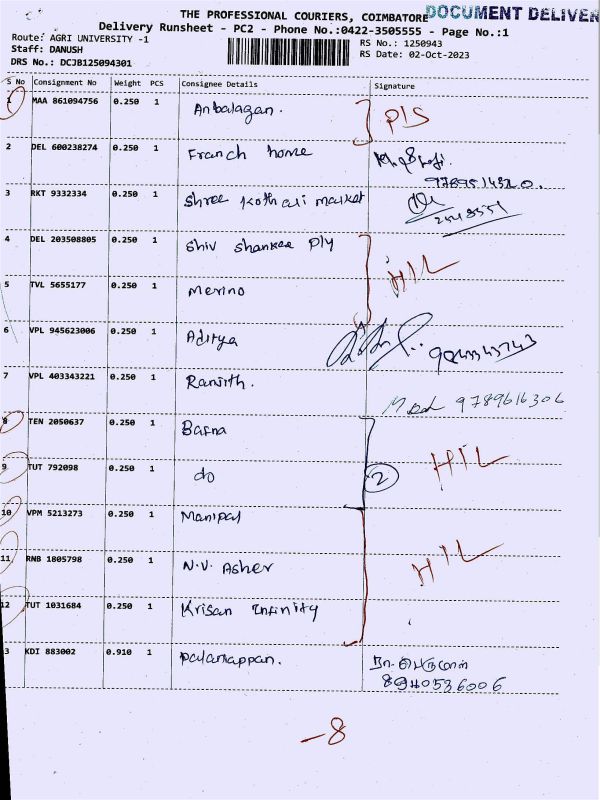 THE PROFESSIONAL COURIERS, COIMBATORE DOCUMENT DELIVER
Delivery Runsheet - PC2 - Phone No.:0422-3505555 - Page No.:1
Route: AGRI UNIVERSITY -1
RS No.: 1250943
Staff: DANUSH
RS Date: 02-Oct-2023
DRS No.: DCJB125094301
S No Consignment No Weight PCS Consignee Details Signature
1 MAA 861094756 0.250 1 Anbalagan. P/S
2 DEL 600238274 0.250 1 Franch home
3 RKT 9332334 0.250 1 Shree Kothari market
4 DEL 203508805 0.250 1 Shiv Shankar Ply H/L
5 TVL 5655177 0.250 1 Merino
6 VPL 945623006 0.250 1 Aditya
7 VPL 403343221 0.250 1 Ranjith. 9789616306
8 TEN 2050637 0.250 1 Bafna H/L
9 TUT 792098 0.250 1 do 2
10 VPM 5213273 0.250 1 Manipal
11 RNB 1805798 0.250 1 N.V. Asher H/L
12 TUT 1031684 0.250 1 Krisan Infinity
3 KDI 883002 0.910 1 Palaniappan.
8940536006
-8